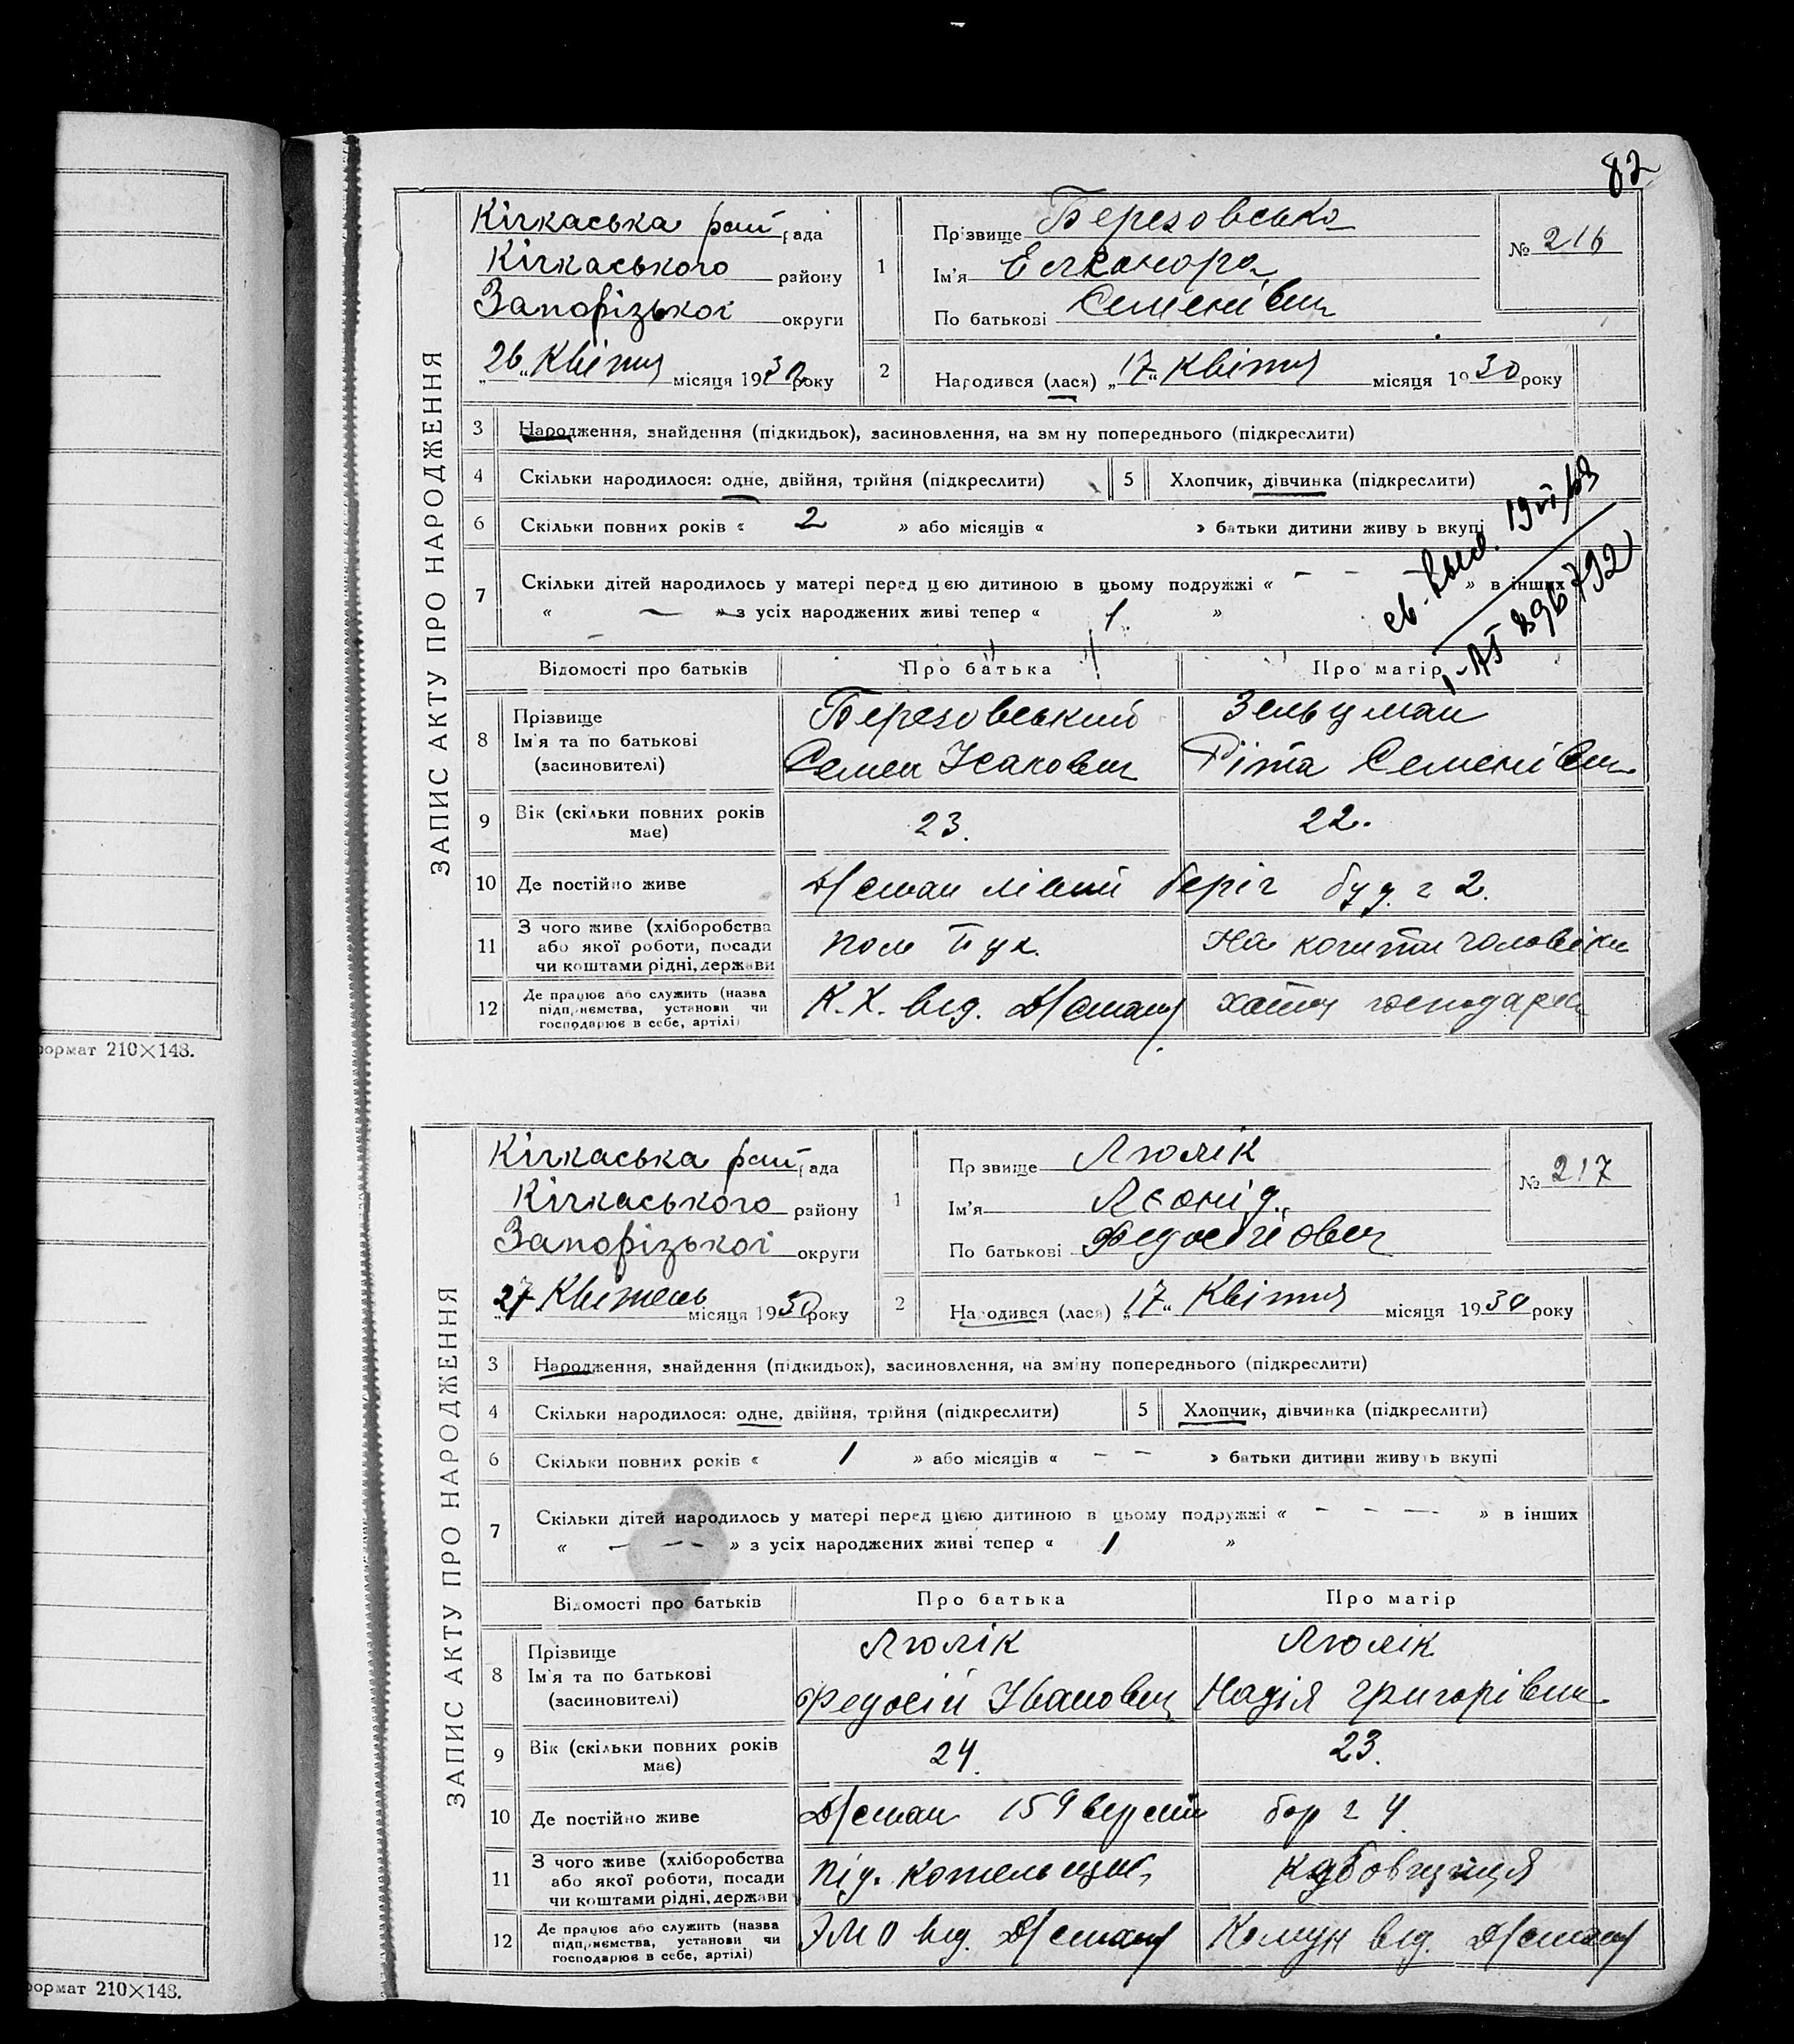 82
ЗАПИС АКТУ ПРО НАРОДЖЕННЯ
Кічкаська рай рада
Кічкаського району
Запорізької округи
„26" Квітня місяця 1930 року
1
Прізвище Березовська
Ім'я Елеонора
По батькові Семенівна
№ 216
2
Народився (лася) „17" Квітня місяця 1930 року
3 Народження, знайдення (підкидьок), засиновлення, на зміну попереднього (підкреслити)
4 Скільки народилося: одне, двійня, трійня (підкреслити) 5 Хлопчик, дівчинка (підкреслити)
6 Скільки повних років « 2 » або місяців « » батьки дитини живуть вкупі
7 Скільки дітей народилось у матері перед цією дитиною в цьому подружжі « — — » в інших
« — » з усіх народжених живі тепер « 1 »
Відомості про батьків Про батька Про матір
8 Прізвище Березовський Зельцман
Ім'я та по батькові Семен Ісакович Ріта Семенівн.
(засиновителі)
9 Вік (скільки повних років має) 23. 22.
10 Де постійно живе Д/стан лівий беріг буд. г 2.
11 З чого живе (хліборобства або якої роботи, посади чи коштами рідні, держави На кошти чоловіка
12 Де працює або служить (назва підприємства, установи чи господарює в себе, артілі) К.Х. від. Д/стану хатня господарка
формат 210×148.
ЗАПИС АКТУ ПРО НАРОДЖЕННЯ
Кічкаська рай рада
Кічкаського району
Запорізької округи
„27" Квітень місяця 1930 року
1
Прізвище Люлік
Ім'я Леонід
По батькові Федосієович
№ 217
2
Народився (лася) „17" Квітня місяця 1930 року
3 Народження, знайдення (підкидьок), засиновлення, на зміну попереднього (підкреслити)
4 Скільки народилося: одне, двійня, трійня (підкреслити) 5 Хлопчик, дівчинка (підкреслити)
6 Скільки повних років « 1 » або місяців « — — » батьки дитини живуть вкупі
7 Скільки дітей народилось у матері перед цією дитиною в цьому подружжі « — — — » в інших
« — — — » з усіх народжених живі тепер « 1 »
Відомості про батьків Про батька Про матір
8 Прізвище Люлік Люлік
Ім'я та по батькові Федосій Іванович Надія Григорівн.
(засиновителі)
9 Вік (скільки повних років має) 24. 23.
10 Де постійно живе Д/стан 159 верста бар г 4
11 З чого живе (хліборобства або якої роботи, посади чи коштами рідні, держави під. котельщик,
12 Де працює або служить (назва підприємства, установи чи господарює в себе, артілі) ЭМО від. Д/стану Комун від. Д/стану
формат 210×148.